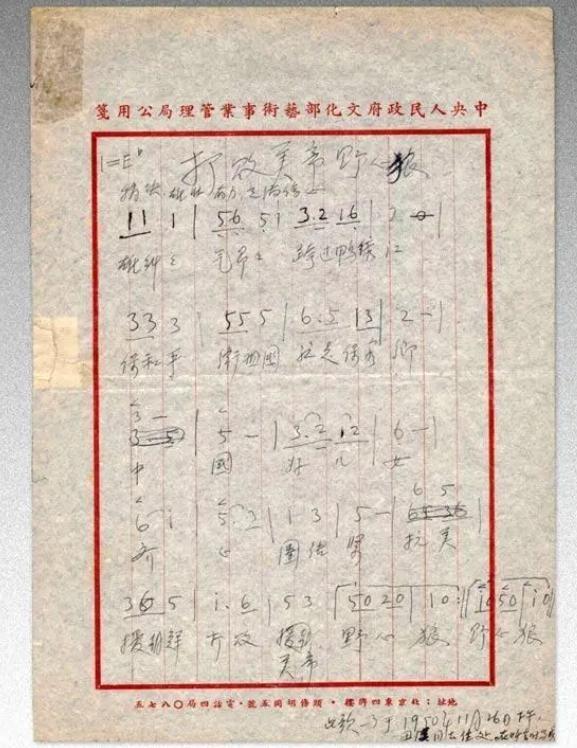 中央人民政府文化部藝術事業管理局公用箋
1=E♭ 打败美帝野心狼
11 1 | 56 51 | 3.2 16 | 2 - |
雄糾々 气昂々 跨过鸭绿江
33 3 | 55 5 | 6.5 13 | 2 - |
保和平 衛祖國 就是保家鄉
3 - | 5 - | 3.2 12 | 6 - |
中 國 好 儿 女
6 5
6 i | 5. 3 | 1 3 | 5 - |
齐 心 團结 緊 抗美
36 5 | i. 6 | 5 3 | 50 20 | 10 :|| i0 50 | i0 ||
援朝鲜 打败 野心 狼 野心 狼
美帝
地址：北京東四牌樓・頭條胡同五號・電話四局〇八七五
1950年11月26日下午